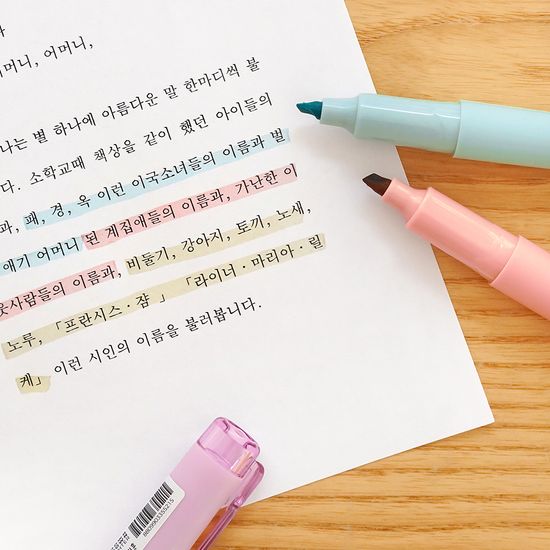 머니, 어머니,
나는 별 하나에 아름다운 말 한마디씩 불
다. 소학교때 책상을 같이 했던 아이들의
과, 패, 경, 옥 이런 이국소녀들의 이름과 벌
애기 어머니 된 계집애들의 이름과, 가난한 이
웃사람들의 이름과, 비둘기, 강아지, 토끼, 노새,
노루, 「프란시스·쟘」 「라이너·마리아·릴
케」 이런 시인의 이름을 불러봅니다.
8809903355215